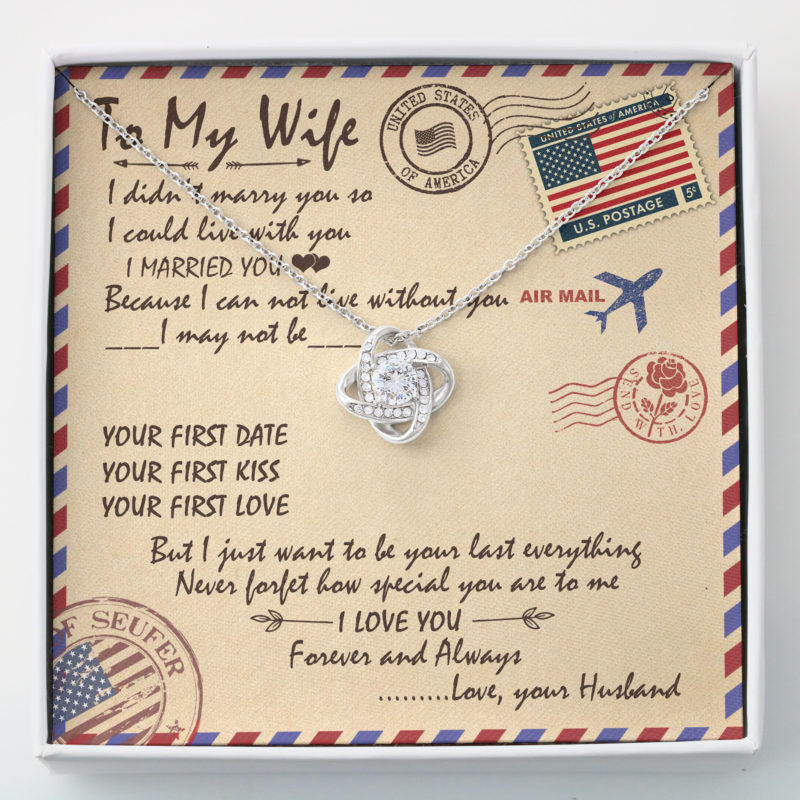 To My Wife
I didn't marry you so
I could live with you
I MARRIED YOU
Because I can not live without you
___I may not be____
YOUR FIRST DATE
YOUR FIRST KISS
YOUR FIRST LOVE
But I just want to be your last everything
Never forfet how special you are to me
I LOVE YOU
Forever and Always
.........Love, your Husband
UNITED STATES
OF AMERICA
UNITED STATES of AMERICA
5¢
U.S. POSTAGE
AIR MAIL
SEND WITH LOVE
F SEUFER